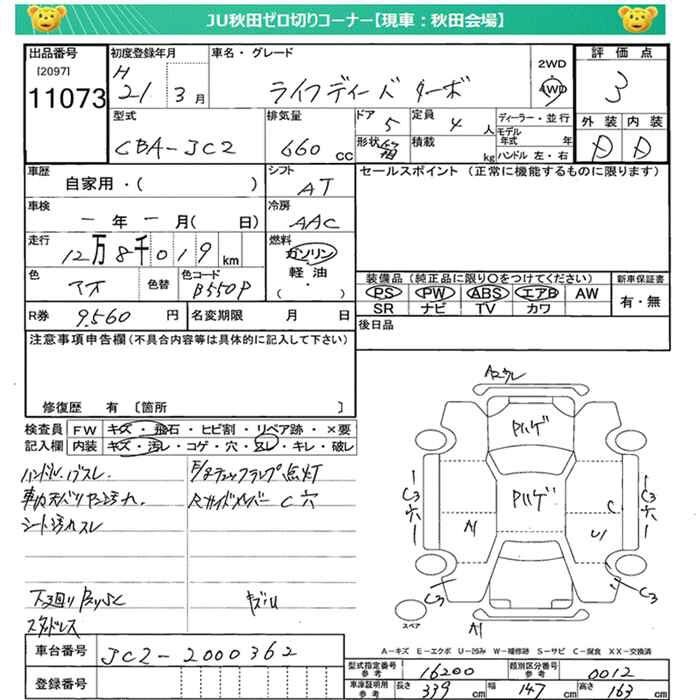 JU秋田ゼロ切りコーナー【現車：秋田会場】
出品番号
[2097]
11073
初度登録年月
H 21 3月
車名・グレード
ライフディーバターボ
2WD
4WD
評価点
3
型式
CBA-JC2
排気量
660 cc
ドア 5
定員 4 人
形状 箱
積載 kg
ディーラー・並行
モデル年式 年
ハンドル 左・右
外装 内装
D D
車歴
自家用・( )
シフト
AT
セールスポイント（正常に機能するものに限ります）
車検
－年－月( 日)
冷房
AAC
走行
12万8千019km
燃料
ガソリン
軽油・
( )
色
アオ
色替
色コード
B550P
装備品（純正品に限り〇をつけてください）
PS PW ABS エアB AW
SR ナビ TV カワ
新車保証書
有・無
R券 9,560円
名変期限 月 日
後日品
注意事項申告欄（不具合内容等は具体的に記入して下さい）
修復歴 有 〔箇所 〕
検査員記入欄
FW キズ・飛石・ヒビ割・リペア跡・×要
内装 キズ・汚レ・コゲ・穴・スレ・キレ・破レ
ハンドルハゲスレ
F/Eチェックランプ点灯
車内天バリヤニ汚れ
Rサイドメンバー C穴
シート汚れスレ
下回りサビSC
キズU
スタッドレス
A2ウレ
Pハゲ
Pハゲ
C3 穴
A1
C
U1
C3 穴
C3
C3
A1
スペア
A－キズ E－エクボ U－凹み W－補修跡 S－サビ C－腐食 XX－交換済
車台番号
JC2-2000362
登録番号
型式指定番号参考 16200
類別区分番号参考 0012
車庫証明用参考
長さ 339 cm
幅 147 cm
高さ 163 cm